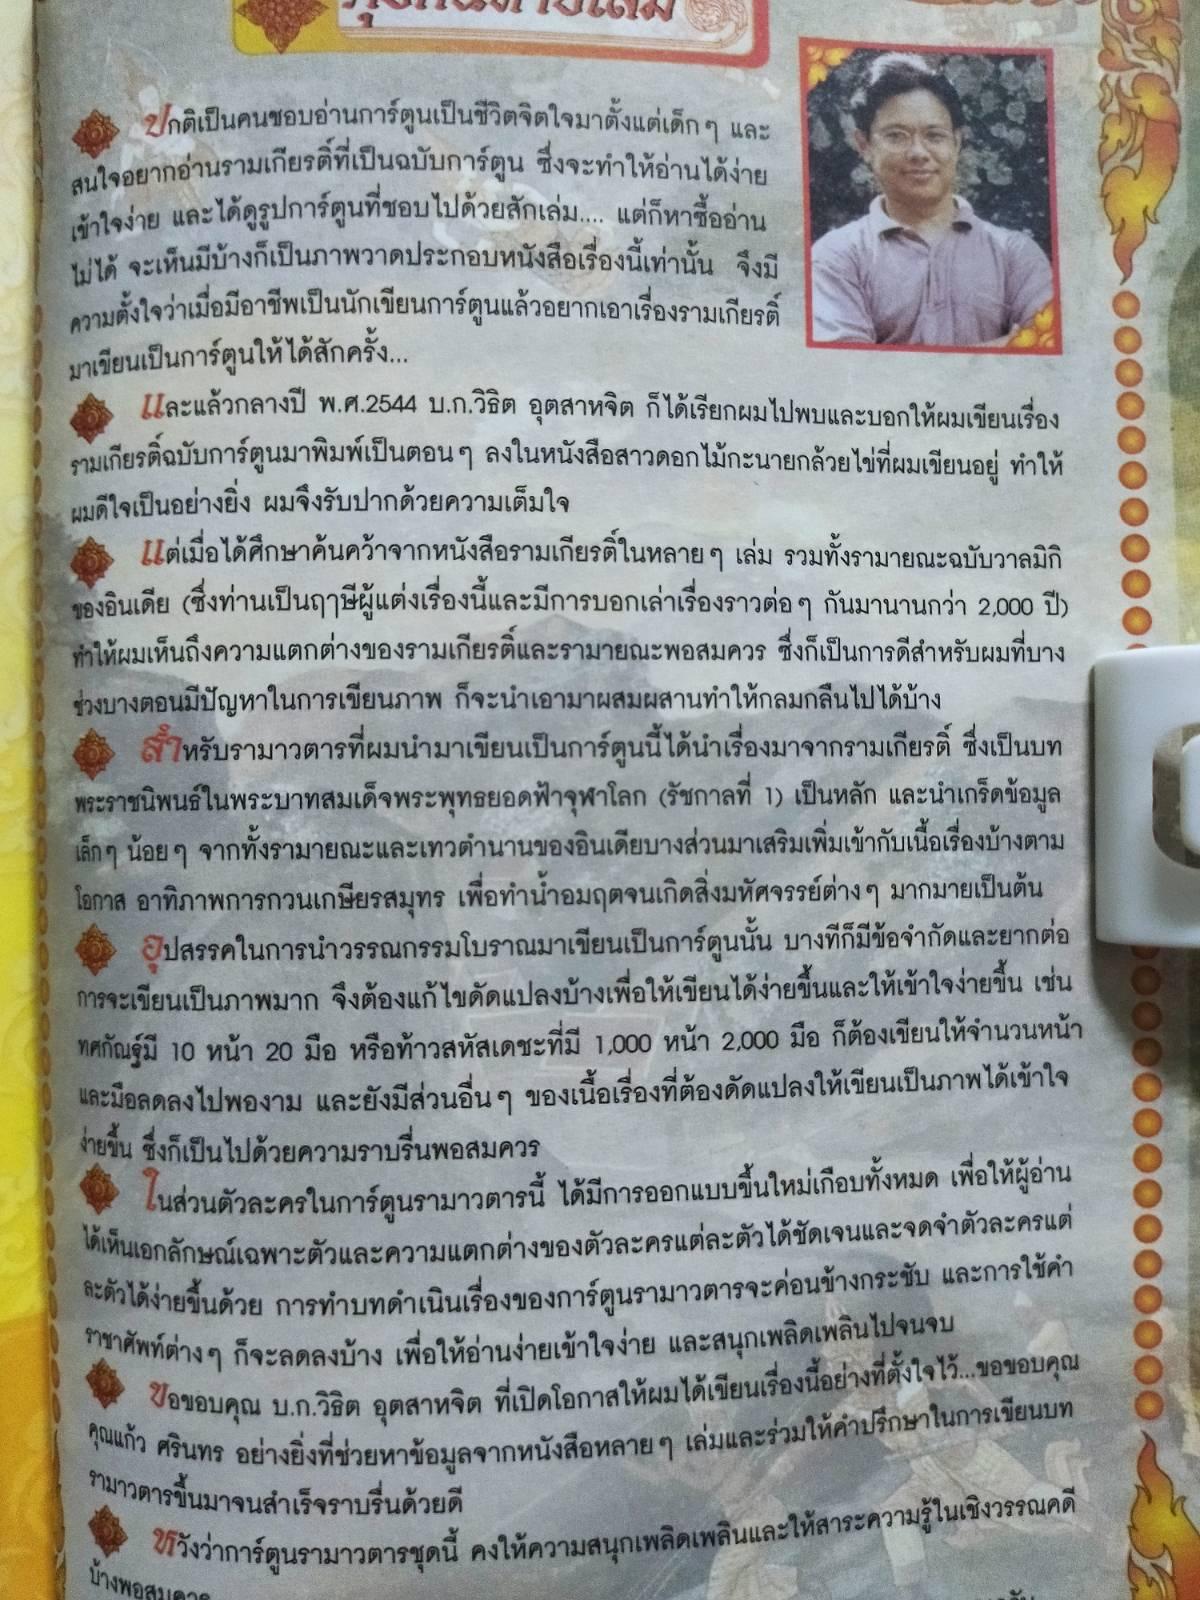 คุยกันท้ายเล่ม
ปกติเป็นคนชอบอ่านการ์ตูนเป็นชีวิตจิตใจมาตั้งแต่เด็กๆ และ
สนใจอยากอ่านรามเกียรติ์ที่เป็นฉบับการ์ตูน ซึ่งจะทำให้อ่านได้ง่าย
เข้าใจง่าย และได้ดูรูปการ์ตูนที่ชอบไปด้วยสักเล่ม.... แต่ก็หาซื้ออ่าน
ไม่ได้ จะเห็นมีบ้างก็เป็นภาพวาดประกอบหนังสือเรื่องนี้เท่านั้น จึงมี
ความตั้งใจว่าเมื่อมีอาชีพเป็นนักเขียนการ์ตูนแล้วอยากเอาเรื่องรามเกียรติ์
มาเขียนเป็นการ์ตูนให้ได้สักครั้ง...
และแล้วกลางปี พ.ศ.2544 บ.ก.วิธิต อุตสาหจิต ก็ได้เรียกผมไปพบและบอกให้ผมเขียนเรื่อง
รามเกียรติ์ฉบับการ์ตูนมาพิมพ์เป็นตอนๆ ลงในหนังสือสาวดอกไม้กะนายกล้วยไข่ที่ผมเขียนอยู่ ทำให้
ผมดีใจเป็นอย่างยิ่ง ผมจึงรับปากด้วยความเต็มใจ
แต่เมื่อได้ศึกษาค้นคว้าจากหนังสือรามเกียรติ์ในหลายๆ เล่ม รวมทั้งรามายณะฉบับวาลมิกิ
ของอินเดีย (ซึ่งท่านเป็นฤๅษีผู้แต่งเรื่องนี้และมีการบอกเล่าเรื่องราวต่อๆ กันมานานกว่า 2,000 ปี)
ทำให้ผมเห็นถึงความแตกต่างของรามเกียรติ์และรามายณะพอสมควร ซึ่งก็เป็นการดีสำหรับผมที่บาง
ช่วงบางตอนมีปัญหาในการเขียนภาพ ก็จะนำเอามาผสมผสานทำให้กลมกลืนไปได้บ้าง
สำหรับรามาวตารที่ผมนำมาเขียนเป็นการ์ตูนนี้ได้นำเรื่องมาจากรามเกียรติ์ ซึ่งเป็นบท
พระราชนิพนธ์ในพระบาทสมเด็จพระพุทธยอดฟ้าจุฬาโลก (รัชกาลที่ 1) เป็นหลัก และนำเกร็ดข้อมูล
เล็กๆ น้อยๆ จากทั้งรามายณะและเทวตำนานของอินเดียบางส่วนมาเสริมเพิ่มเข้ากับเนื้อเรื่องบ้างตาม
โอกาส อาทิภาพการกวนเกษียรสมุทร เพื่อทำน้ำอมฤตจนเกิดสิ่งมหัศจรรย์ต่างๆ มากมายเป็นต้น
อุปสรรคในการนำวรรณกรรมโบราณมาเขียนเป็นการ์ตูนนั้น บางทีก็มีข้อจำกัดและยากต่อ
การจะเขียนเป็นภาพมาก จึงต้องแก้ไขดัดแปลงบ้างเพื่อให้เขียนได้ง่ายขึ้นและให้เข้าใจง่ายขึ้น เช่น
ทศกัณฐ์มี 10 หน้า 20 มือ หรือท้าวสหัสเดชะที่มี 1,000 หน้า 2,000 มือ ก็ต้องเขียนให้จำนวนหน้า
และมือลดลงไปพองาม และยังมีส่วนอื่นๆ ของเนื้อเรื่องที่ต้องดัดแปลงให้เขียนเป็นภาพได้เข้าใจ
ง่ายขึ้น ซึ่งก็เป็นไปด้วยความราบรื่นพอสมควร
ในส่วนตัวละครในการ์ตูนรามาวตารนี้ ได้มีการออกแบบขึ้นใหม่เกือบทั้งหมด เพื่อให้ผู้อ่าน
ได้เห็นเอกลักษณ์เฉพาะตัวและความแตกต่างของตัวละครแต่ละตัวได้ชัดเจนและจดจำตัวละครแต่
ละตัวได้ง่ายขึ้นด้วย การทำบทดำเนินเรื่องของการ์ตูนรามาวตารจะค่อนข้างกระชับ และการใช้คำ
ราชาศัพท์ต่างๆ ก็จะลดลงบ้าง เพื่อให้อ่านง่ายเข้าใจง่าย และสนุกเพลิดเพลินไปจนจบ
ขอขอบคุณ บ.ก.วิธิต อุตสาหจิต ที่เปิดโอกาสให้ผมได้เขียนเรื่องนี้อย่างที่ตั้งใจไว้...ขอขอบคุณ
คุณแก้ว ศรินทร อย่างยิ่งที่ช่วยหาข้อมูลจากหนังสือหลายๆ เล่มและร่วมให้คำปรึกษาในการเขียนบท
รามาวตารขึ้นมาจนสำเร็จราบรื่นด้วยดี
หวังว่าการ์ตูนรามาวตารชุดนี้ คงให้ความสนุกเพลิดเพลินและให้สาระความรู้ในเชิงวรรณคดี
บ้างพอสมควร